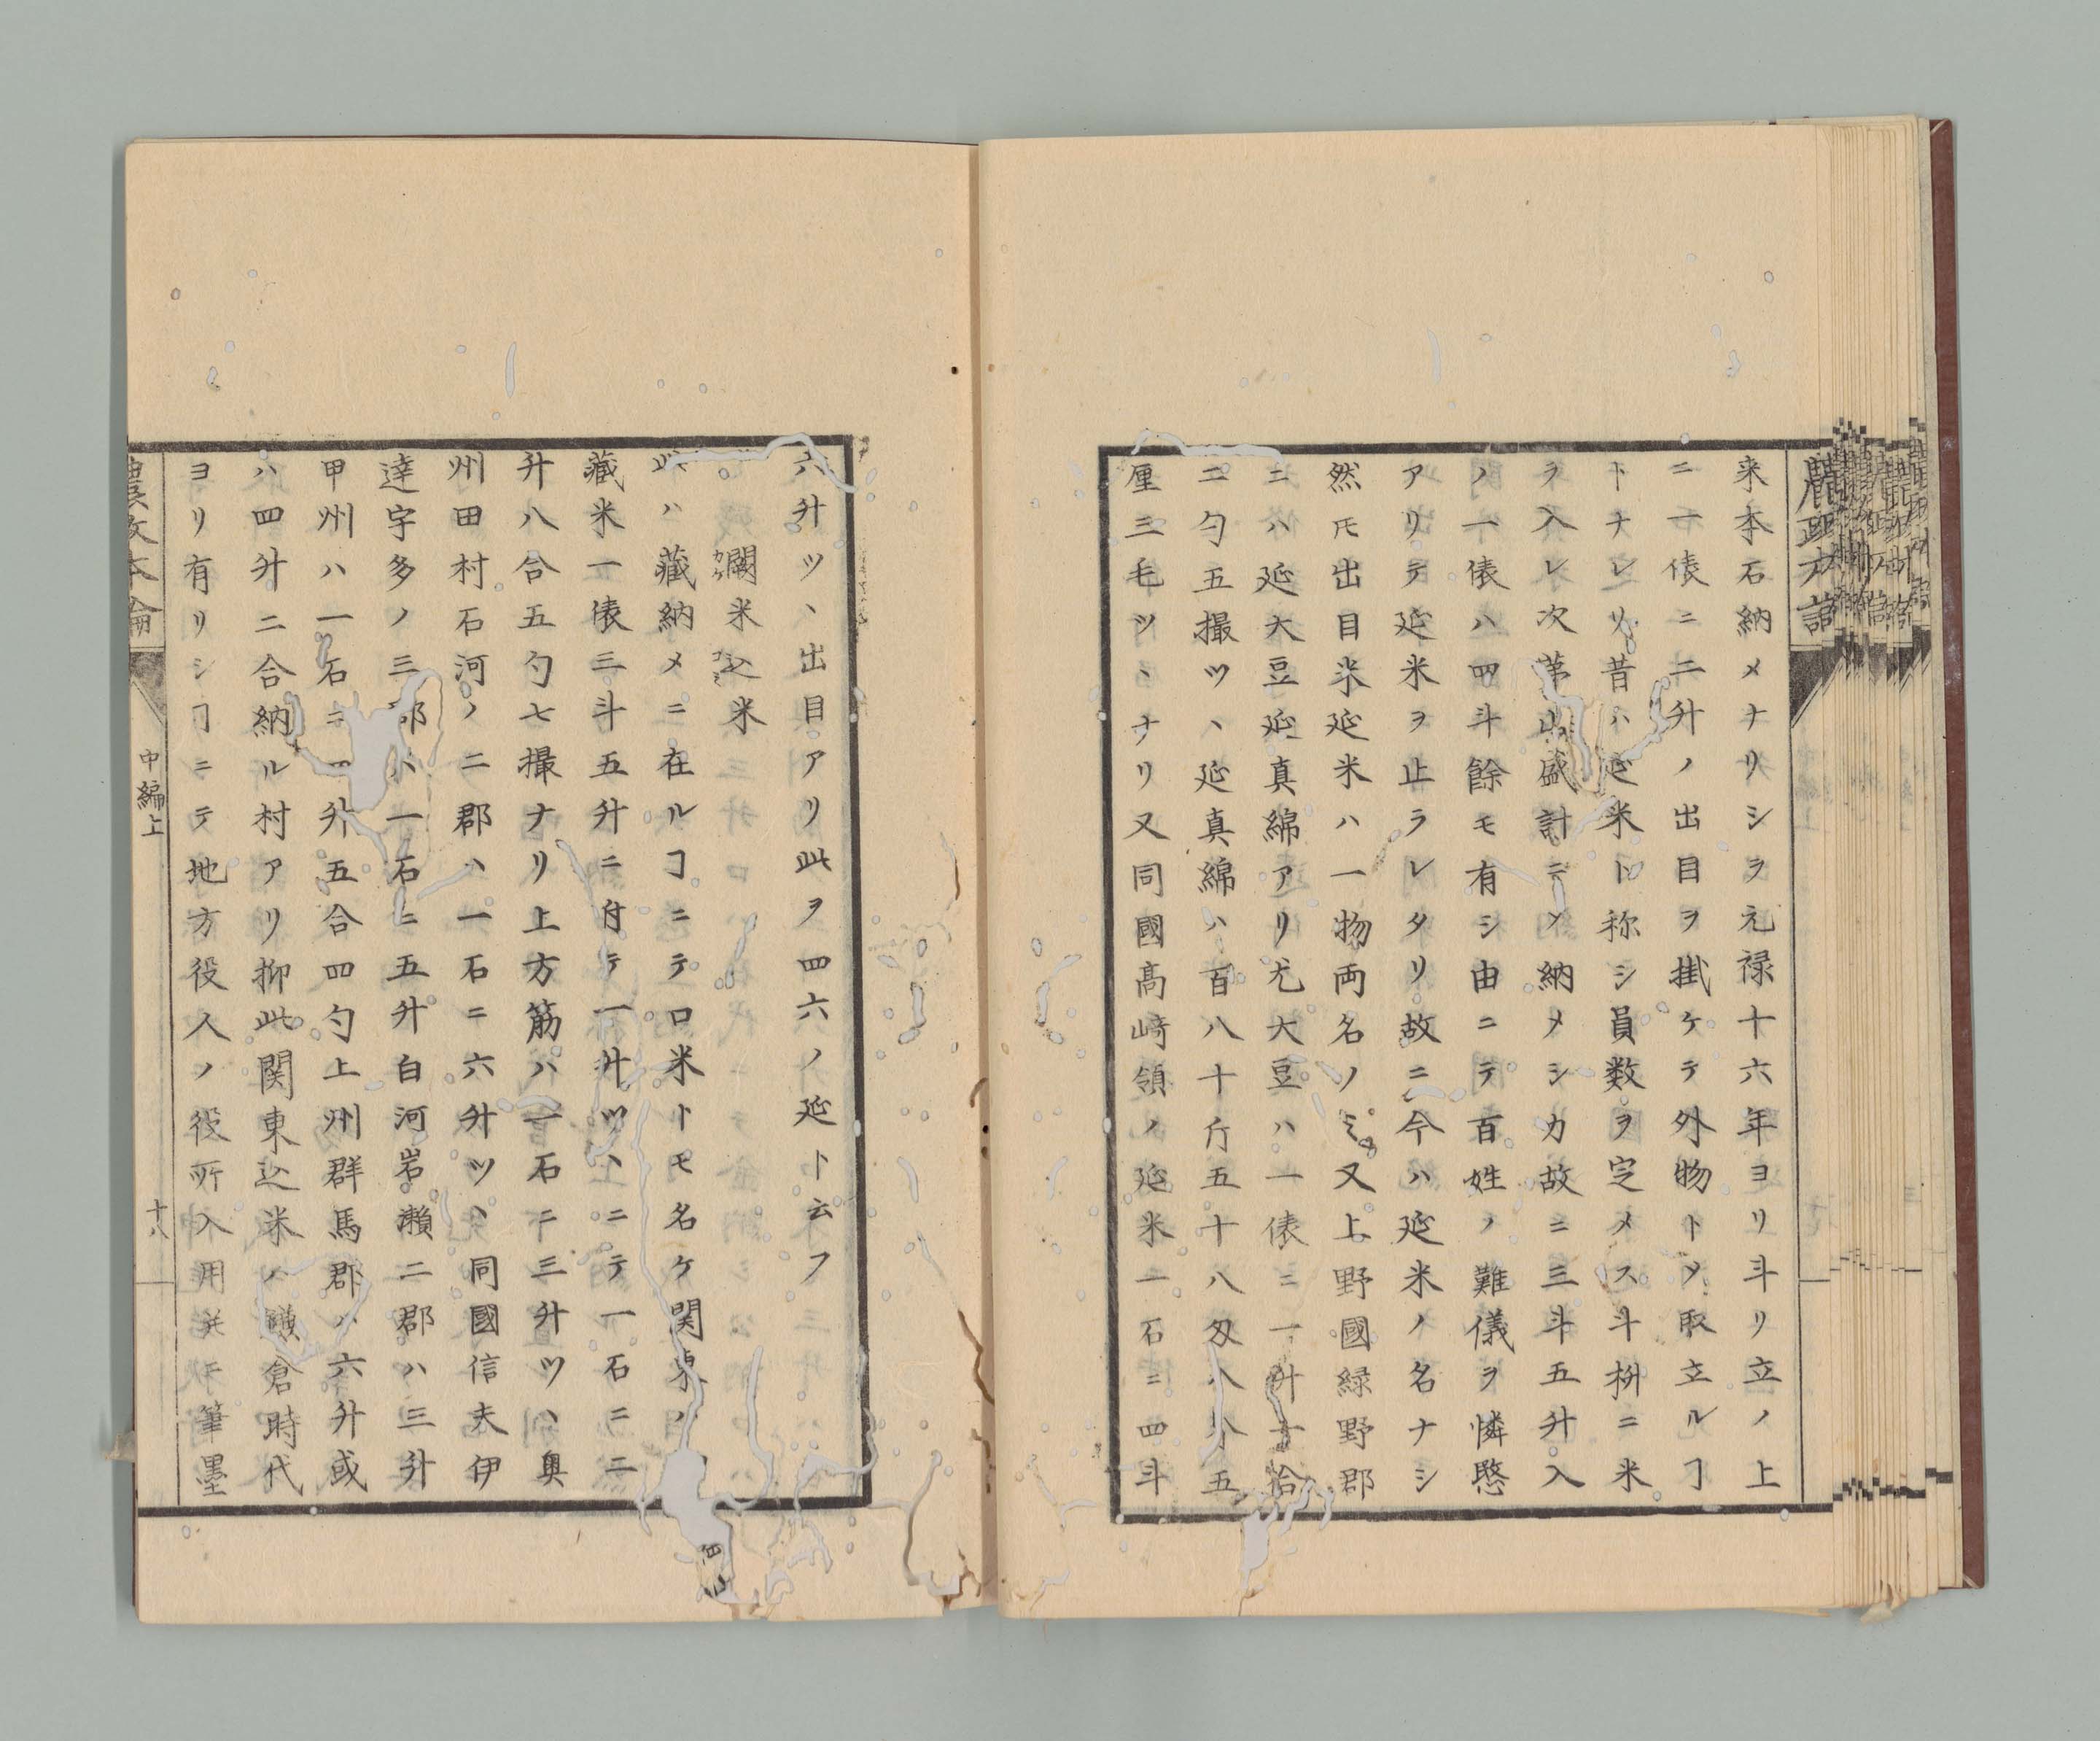 来本石納メナリシヲ元禄十六年ヨリ斗リ立ノ上
ニ一俵ニ二升ノ出目ヲ掛ケテ外物トメ取立ルヿ
トナレリ昔ハ延米ト称シ員数ヲ定メス斗枡ニ米
ヲ入レ次第山盛計ニメ納メシカ故ニ三斗五升入
ノ一俵ハ四斗餘モ有シ由ニテ百姓ノ難儀ヲ憐愍
アリテ延米ヲ止ラレタリ故ニ今ハ延米ノ名ナシ
然モ出目米延米ハ一物両名ノミ又上野國緑野郡
ニハ延大豆延真綿アリ尤大豆ハ一俵ニ一升十拾
二勺五撮ツヽ延真綿ハ百八十斤五十八匁八分五
厘三毛ツヽナリ又同國髙﨑領ノ延米一石ニ四斗
六升ツヽ出目アリ此ヲ四六ノ延ト云フ
闕米込米
カケ
コミ
此ハ藏納メニ在ルヿニテ口米トモ名ケ関東ノ
藏米一俵三斗五升ニ付テ一升ツヽニテ一石ニ二
升八合五勺七撮ナリ上方筋ハ一石ニ三升ツヽ奥
州田村石河ノ二郡ハ一石ニ六升ツヽ同國信夫伊
達宇多ノ三郡ハ一石ニ五升白河岩瀬二郡ハ三升
甲州ハ一石ニ四升五合四勺上州群馬郡ハ六升或
ハ四升二合納ル村アリ抑此関東込米ハ鎌倉時代
ヨリ有リシヿニテ地方役人ノ役所入用并ニ筆墨
農政本論
中編上
十八